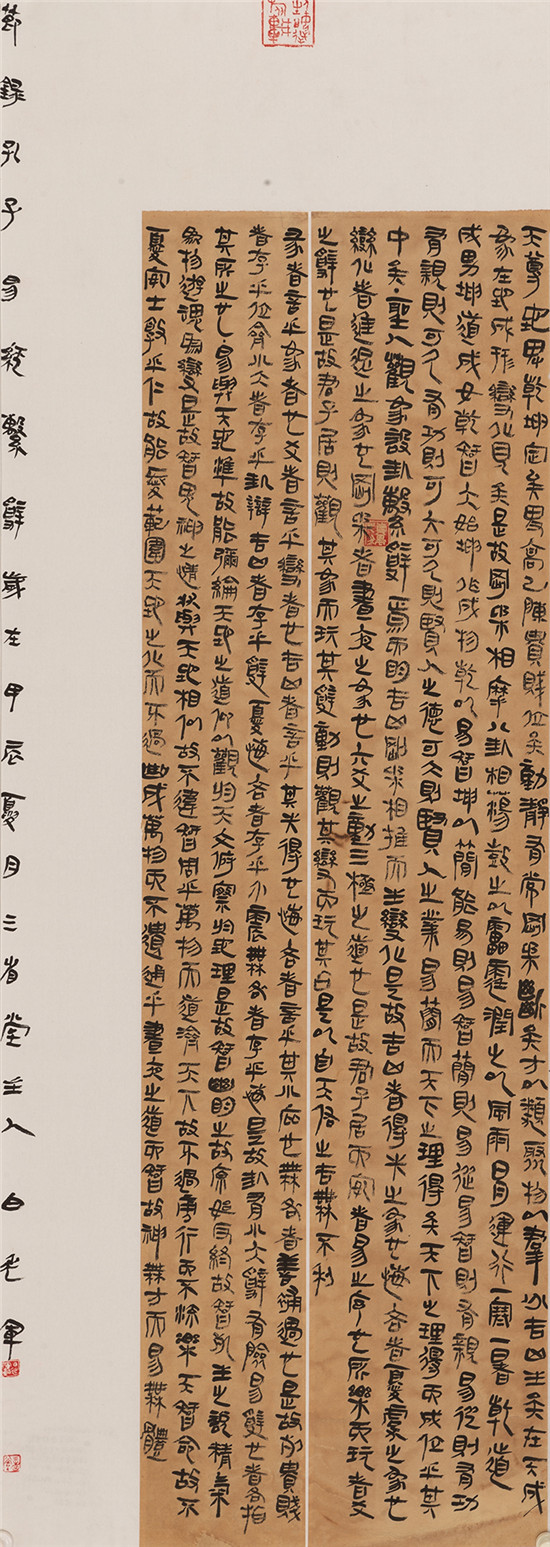 天尊地卑乾坤定矣卑高以陳貴賤位矣動靜有常剛柔斷矣方以類聚物以羣分吉凶生矣在天成
象在地成形變化見矣是故剛柔相摩八卦相蕩鼓之以雷霆潤之以風雨日月運行一寒一暑乾道
成男坤道成女乾智大始坤作成物乾以易智坤以簡能易則易智簡則易從易智則有親易從則有功
有親則可久有功則可大可久則賢人之德可大則賢人之業易簡而天下之理得矣天下之理得而成位乎其
中矣聖人觀象設卦繫辭焉而明吉凶剛柔相推而生變化是故吉凶者得失之象也悔吝者憂虞之象也
變化者進退之象也剛柔者晝夜之象也六爻之動三極之道也是故君子居而安者易之序也所樂而玩者爻
之辭也是故君子居則觀其象而玩其辭動則觀其變而玩其占是以自天佑之吉無不利
彖者言乎象者也爻者言乎變者也吉凶者言乎其失得也悔吝者言乎其小疵也無咎者善補過也是故列貴賤
者存乎位齊小大者存乎卦辯吉凶者存乎辭憂悔吝者存乎介震無咎者存乎悔是故卦有小大辭有險易辭也者各指
其所之也易與天地準故能彌綸天地之道仰以觀於天文俯察於地理是故智幽明之故原始反終故智死生之說精氣
為物遊魂為變是故智鬼神之情狀與天地相似故不違智周乎萬物而道濟天下故不過旁行而不流樂天智命故不
憂安土敦乎仁故能愛範圍天地之化而不過曲成萬物而不遺通乎晝夜之道而智故神無方而易無體
節錄孔子易經繫辭歲在甲辰夏月三省堂主人白軍